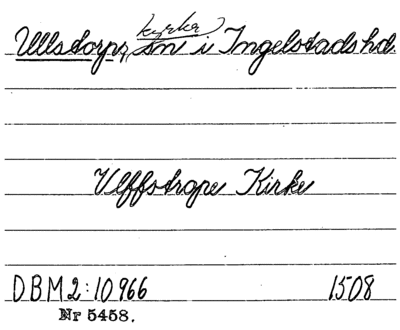 kyrka
Ullstorps sn i Ingelstads hd.
Ulffstrope Kirke
DBM 2:10966 1508
Nr 5458.